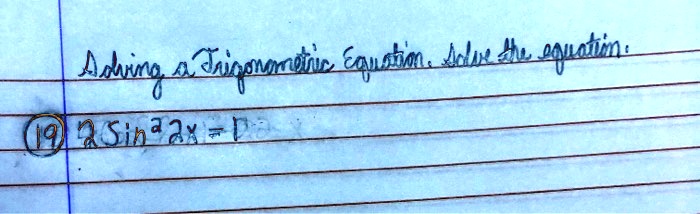 Solving a Trigonometric Equation. Solve the equation.
19 2 Sin² 2x = 1